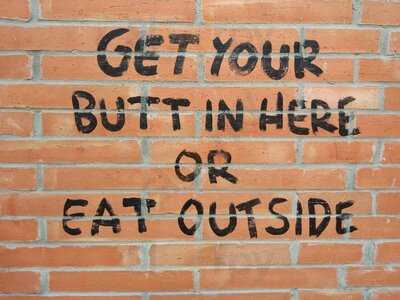 GET YOUR
BUTT IN HERE
OR
EAT OUTSIDE